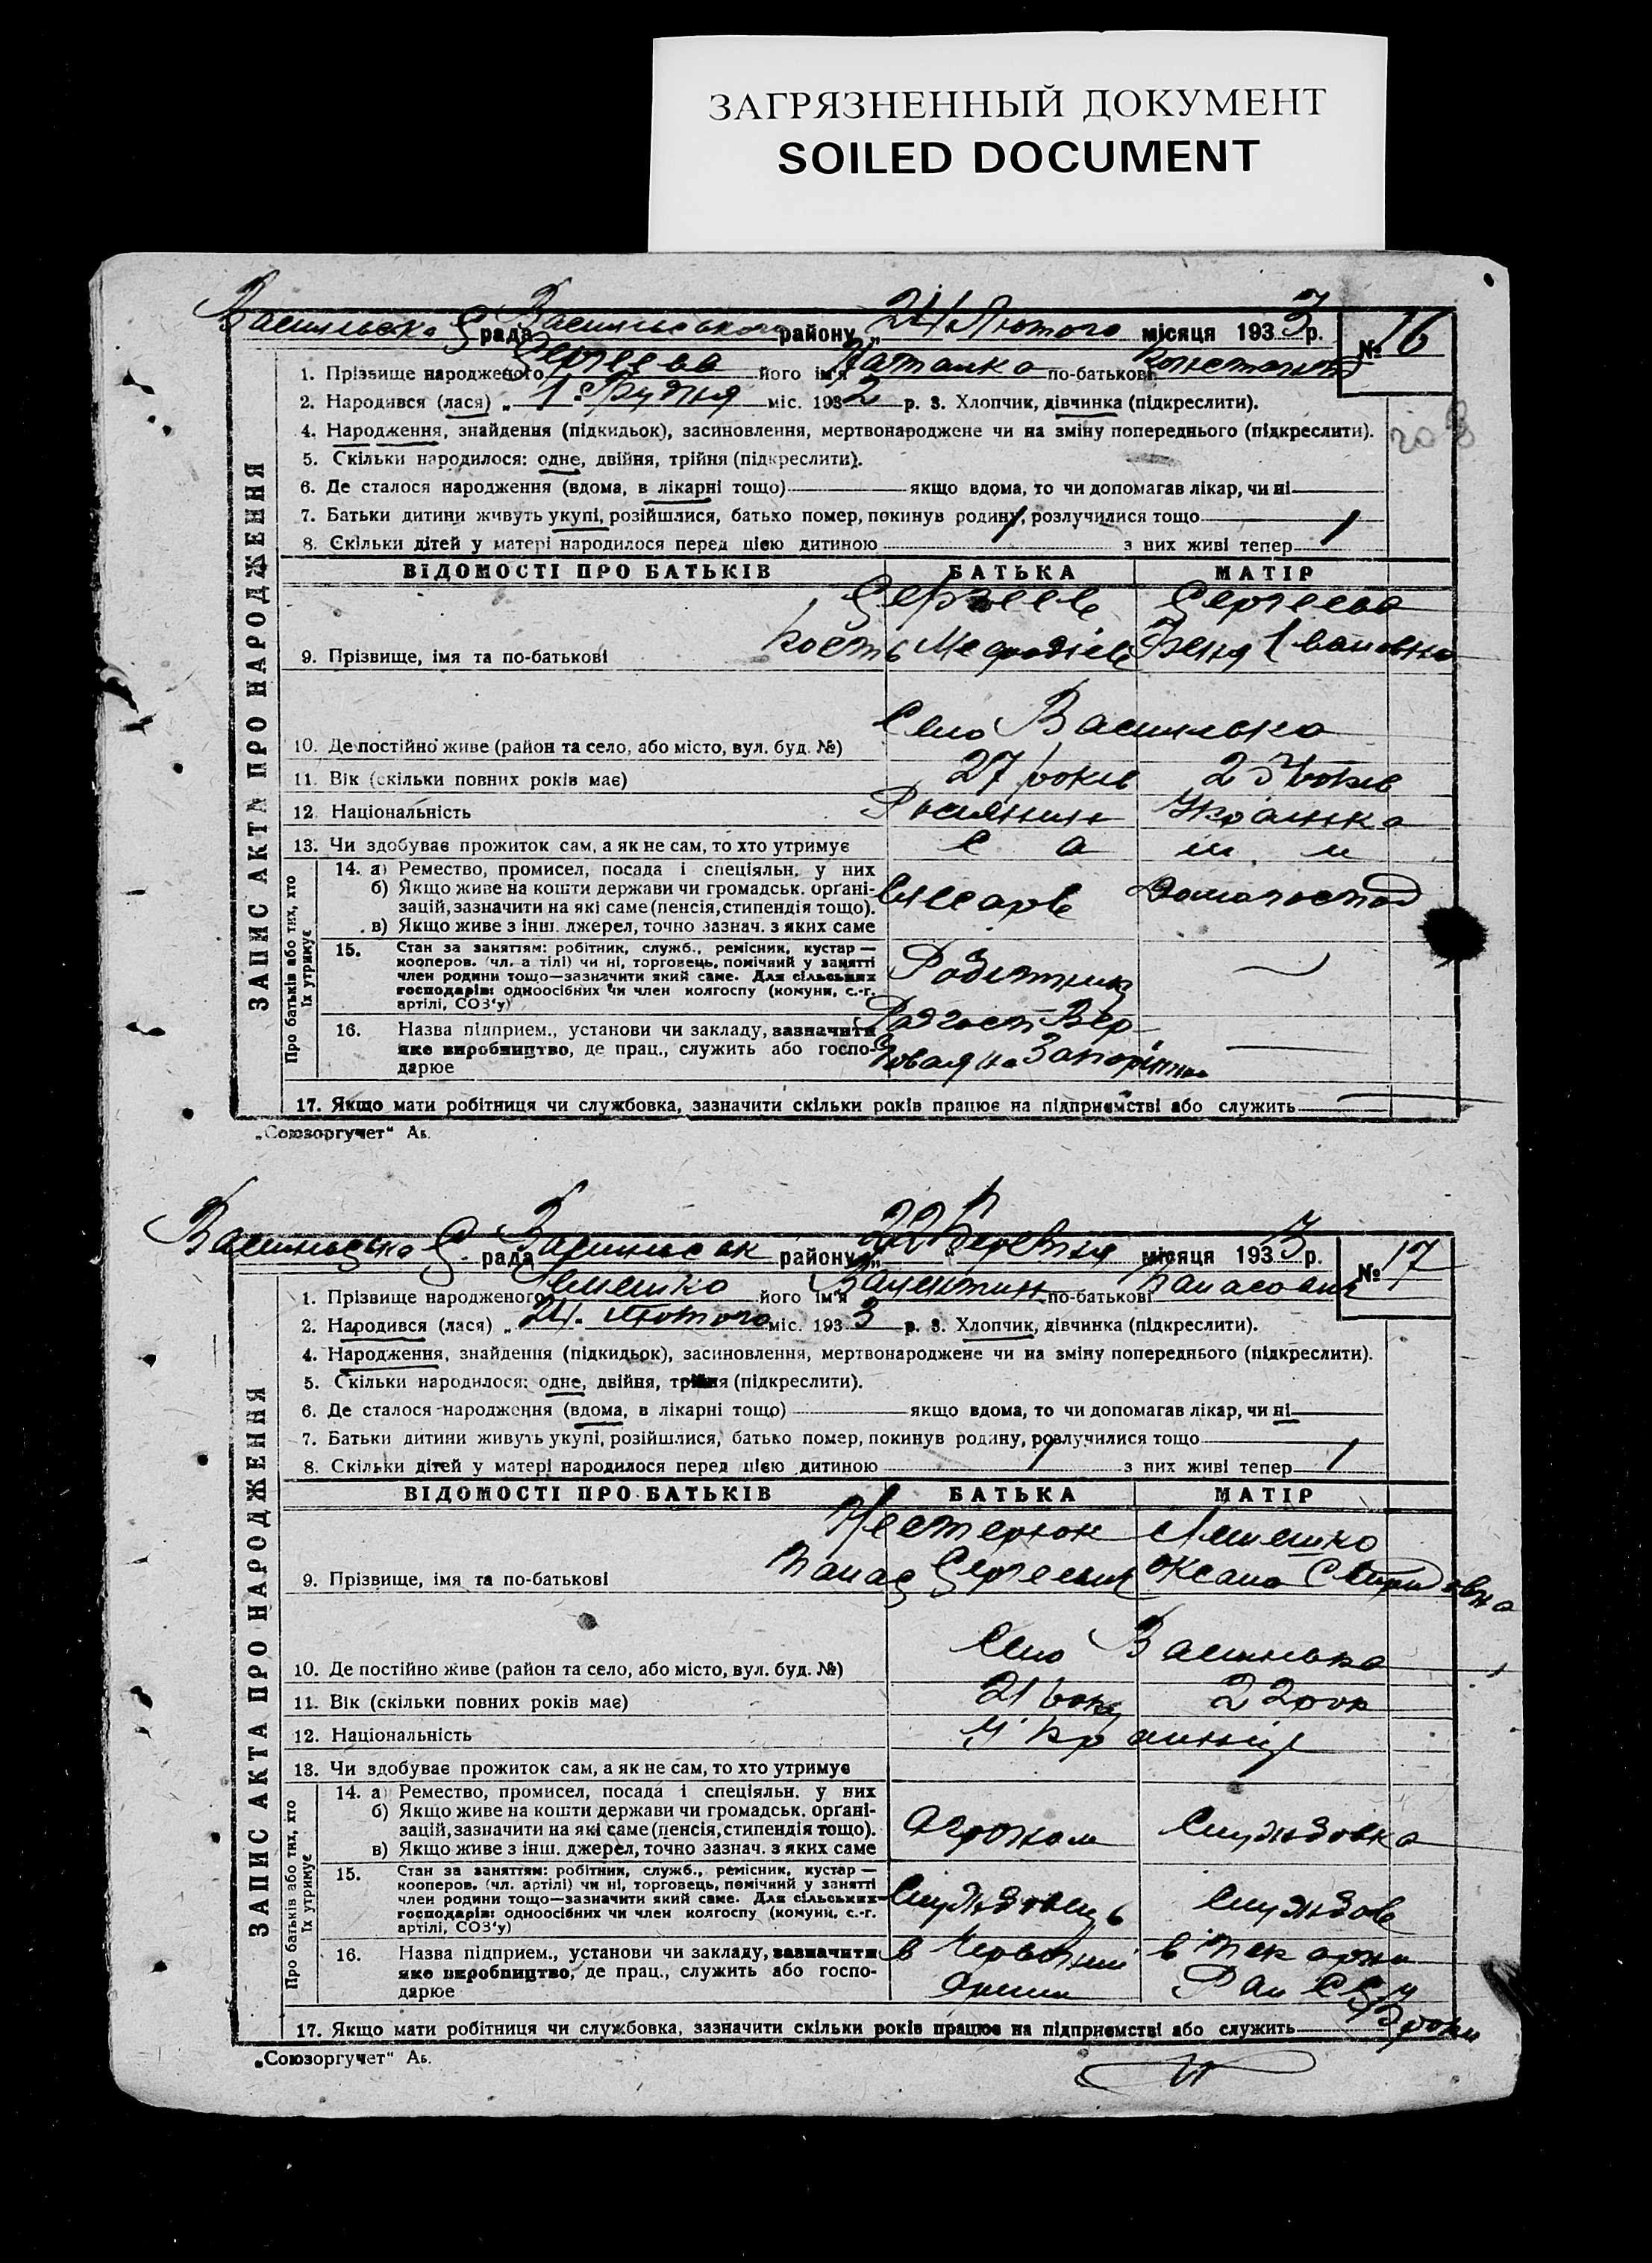 ЗАГРЯЗНЕННЫЙ ДОКУМЕНТ
SOILED DOCUMENT
Васильевка С рада Васильевського району „ 24 Лютого місяця 1933 р. № 16
1. Прізвище народженого Сергеева його ім'я Наталка по-батькові
2. Народився (лася) „ 1 Грудня міс. 1932 р. 3. Хлопчик, дівчинка (підкреслити).
4. Народження, знайдення (підкидьок), засиновлення, мертвонароджене чи на зміну попереднього (підкреслити).
5. Скільки народилося: одне, двійня, трійня (підкреслити).
6. Де сталося народження (вдома, в лікарні тощо) якщо вдома, то чи допомагав лікар, чи ні
7. Батьки дитини живуть укупі, розійшлися, батько помер, покинув родину, розлучилися тощо
8. Скільки дітей у матері народилося перед цією дитиною 1 з них живі тепер 1
ВІДОМОСТІ ПРО БАТЬКІВ БАТЬКА МАТІР
Сергеев Сергеева
9. Прізвище, імя та по-батькові Кость Мефодіев Івановна
10. Де постійно живе (район та село, або місто, вул. буд. №) Село Василька
11. Вік (скільки повних років має) 27 років 25 років
12. Національність Росиянин Українка
13. Чи здобуває прожиток сам, а як не сам, то хто утримує с а м и
14. а) Ремество, промисел, посада і спеціяльн. у них
б) Якщо живе на кошти держави чи громадськ. органі-
зацій, зазначити на які саме (пенсія, стипендія тощо). Слесарь Домогоспод
в) Якщо живе з інш. джерел, точно зазнач. з яких саме
15. Стан за заняттям: робітник, служб., ремісник, кустар —
кооперов. (чл. артілі) чи ні, торговець, помічний у занятті
член родини тощо—зазначити який саме. Для сільських
господарів: одноосібних чи член колгоспу (комуни, с.-г.
артілі, СОЗ'у) Робітник
16. Назва підприєм., установи чи закладу, зазначити
яке виробництво, де прац., служить або госпо-
дарюе
17. Якщо мати робітниця чи службовка, зазначити скільки років працює на підприємстві або служить
ЗАПИС АКТА ПРО НАРОДЖЕННЯ
Про батьків або тих, хто
їх утримує
„Союзоргучет“ Аб.
С рада району „ 22 Березня місяця 1933 р. № 17
1. Прізвище народженого Лемешко його ім'я Валентин по-батькові Панасович
2. Народився (лася) „ 24. Лютого міс. 1933 р. 3. Хлопчик, дівчинка (підкреслити).
4. Народження, знайдення (підкидьок), засиновлення, мертвонароджене чи на зміну попереднього (підкреслити).
5. Скільки народилося: одне, двійня, трійня (підкреслити).
6. Де сталося народження (вдома, в лікарні тощо) якщо вдома, то чи допомагав лікар, чи ні
7. Батьки дитини живуть укупі, розійшлися, батько помер, покинув родину, розлучилися тощо
8. Скільки дітей у матері народилося перед цією дитиною 1 з них живі тепер 1
ВІДОМОСТІ ПРО БАТЬКІВ БАТЬКА МАТІР
Нестерюк Лемешко
9. Прізвище, імя та по-батькові Панас Сергеевич Оксана Спиридовна
10. Де постійно живе (район та село, або місто, вул. буд. №) Село Василька
11. Вік (скільки повних років має) 21 рок 22 рок
12. Національність Українці
13. Чи здобуває прожиток сам, а як не сам, то хто утримує
14. а) Ремество, промисел, посада і спеціяльн. у них
б) Якщо живе на кошти держави чи громадськ. органі-
зацій, зазначити на які саме (пенсія, стипендія тощо). Агроном Службовка
в) Якщо живе з інш. джерел, точно зазнач. з яких саме
15. Стан за заняттям: робітник, служб., ремісник, кустар —
кооперов. (чл. артілі) чи ні, торговець, помічний у занятті
член родини тощо—зазначити який саме. Для сільських
господарів: одноосібних чи член колгоспу (комуни, с.-г.
артілі, СОЗ'у) Службовець Службов
16. Назва підприєм., установи чи закладу, зазначити в Червоний в пекарни
яке виробництво, де прац., служить або госпо- армии
дарюе
17. Якщо мати робітниця чи службовка, зазначити скільки років працює на підприємстві або служить 3 роки
ЗАПИС АКТА ПРО НАРОДЖЕННЯ
Про батьків або тих, хто
їх утримує
„Союзоргучет“ Аб.